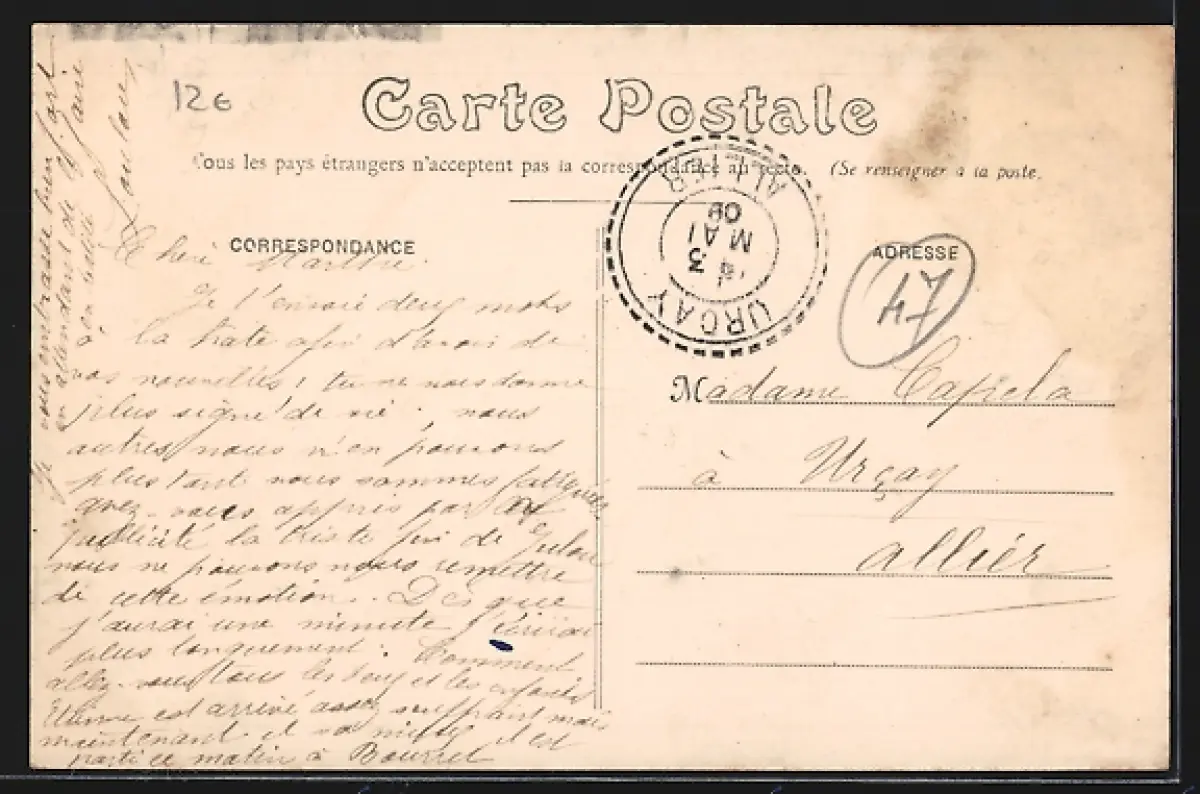 12€
Carte Postale
Tous les pays étrangers n'acceptent pas la correspondance au recto. (Se renseigner à la poste.
CORRESPONDANCE
ADRESSE
URÇAY
3
MAI
09
ALLIER
47
Madame Capiela
à Urçay
allier
Chère Marthe.
Je t'envoie deux mots
à la hate afin d'avoir de
vos nouvelles, tu ne nous donne
plus signe de vie, nous
autres nous n'en pouvons
plus tant nous sommes fatigués
avez-vous appris par
publicité la triste fin de
nous ne pouvons nous remettre
de cette émotion. Dès que
j'aurai une minute j'écrirai
plus longuement. Comment
allez-vous tous les deux et les enfants
est arrivé assez souffrant mais
maintenant il va mieux, il est
parti ce matin à Bourret
Je vous embrasse bien fort
en attendant de